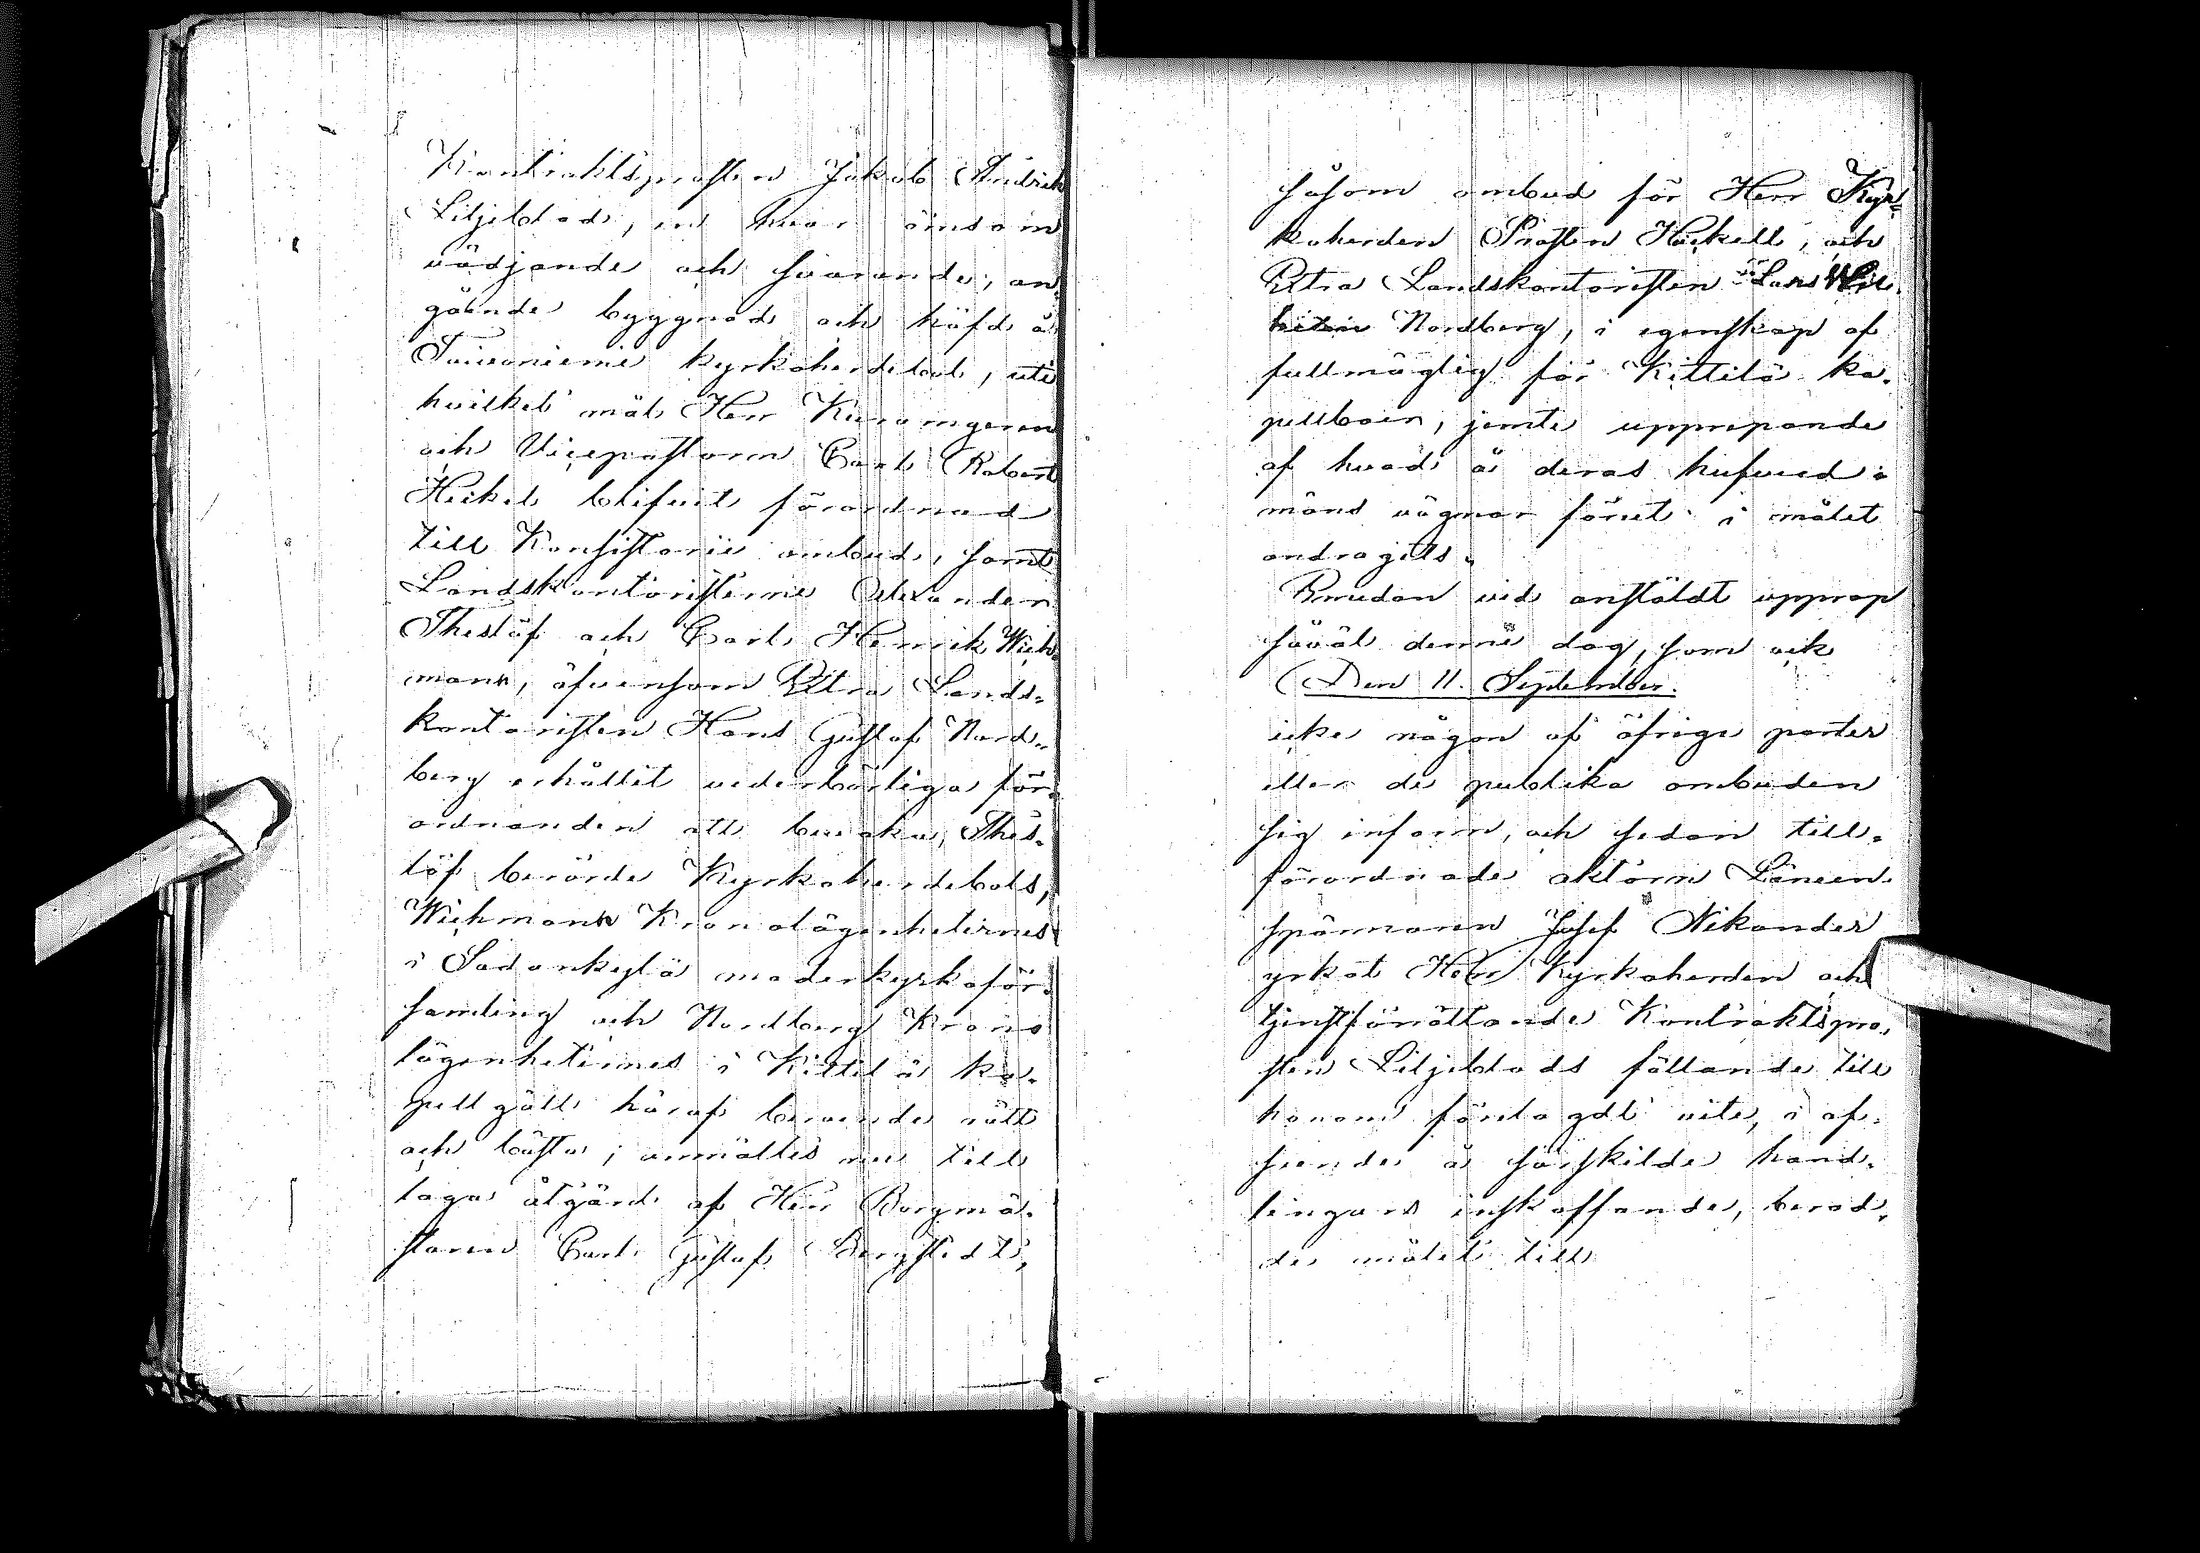 Kontraktsprosten Jakob Andreas
Liljeblad, en hvar ömsom
vädjande och svarande, an-
gående byggnad och häfd å
Taivoniemi kyrkoherdebol, uti
hvilket mål Herr
och Vicepastorn Carl Robert
Heikel blifvit förordnad
till Konsistorii ombud, samt
Landskontoristerne Alexander
Theslöf och Carl Henrik Wich-
mann, äfvensom Extra Lands-
kontoristen Hans Gustaf Nord-
berg erhållit vederbörliga för-
ordnanden att bevaka, Thes-
löf berörde Kyrkoherdebols,
Wichmann Kronolägenheternes
i Sodankylä moderkyrkoför-
samling och Nordberg Krono
lägenheternes i Kittilä ka-
pellgäll häraf beroende rätt
och bästa; anmältes nu till
laga åtgärd af Herr Borgmä-
staren Carl Gustaf Bergstedt,
såsom ombud för Herr Kyr-
koherden Prosten Heikell, och
Extra Landskontoristen Lars
Nordberg, i egenskap af
fullmägtig för Kittilä ka-
pellboer, jemte upprepande
af hvad å deras hufvud-
mäns vägnar förut i målet
andragits.
Emedan vid anstäldt upprop
såväl denne dag, som ock
Den 11. September.
icke någon af öfrige parter
eller de publika ombuden
sig infann, och sedan till-
förordnade aktorn Länsen
spännaren Josef Nikander
yrkat Herr Kyrkoherden och
tjenstförrättande Kontraktspro-
sten Liljeblads fällande till
honom förelagdt vite, i af-
seende å särskilde hand-
lingars inskaffande, berod-
de målet till